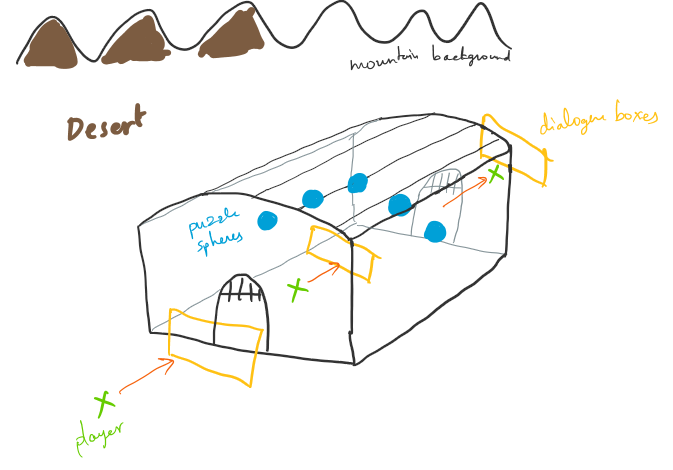 mountain background
Desert
dialogue boxes
puzzle
spheres
player